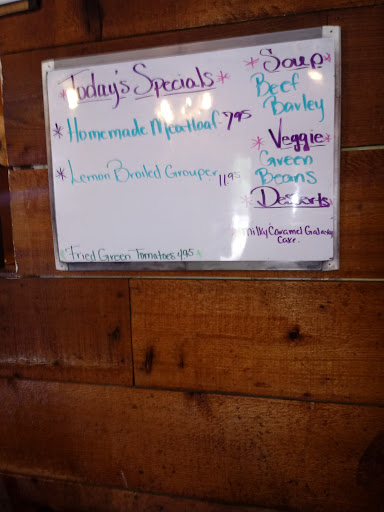 Today's Specials
Homemade Meatloaf - 7.95
Lemon Broiled Grouper 11.95
Fried Green Tomatoes 4.95
Soup
Beef
Barley
Veggie
Green
Beans
Desserts
Milky Caramel Galaxy
Cake